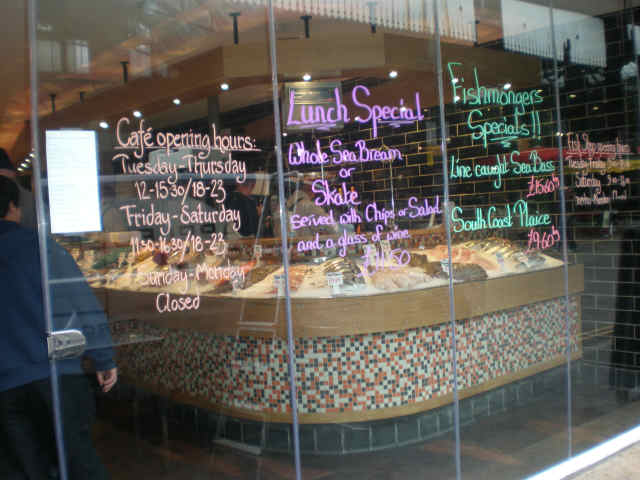 Café opening hours:
Tuesday-Thursday
12-15:30/18-23
Friday-Saturday
11:30-16:30/18-23
Sunday-Monday
Closed
Lunch Special
Whole Sea Bream
or
Skate
served with Chips or Salad
and a glass of wine
Fishmongers
Specials!!
Line caught Sea Bass
South Coast Plaice